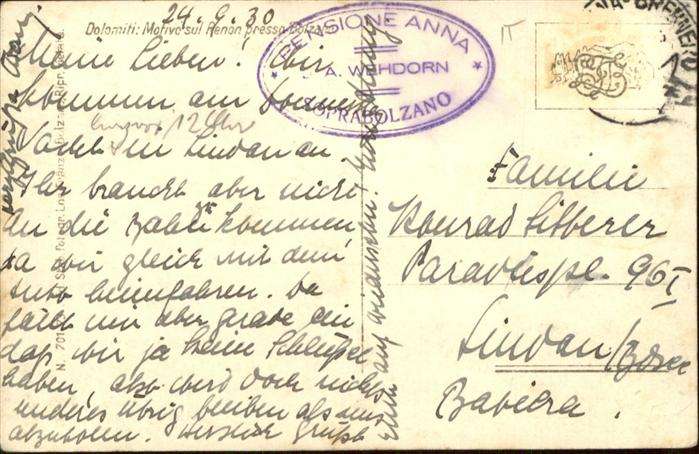 24.9.30
Dolomiti: Motivo sul Renon presso Bolzano
Meine Lieben! Wir
kommen am Sonntag
Nacht in Lindau an
ungefähr 12 Uhr
Ihr braucht aber nicht
an die Bahn kommen
da wir gleich mit dem
Auto heimfahren. Da
fällt mir aber gerade ein
daß wir ja keine Schlüssel
haben, also wird doch nichts
anderes übrig bleiben als uns
abzuholen. Herzliche Grüße
PENSIONE ANNA
A. WEHDORN
SOPRABOLZANO
Familie
Konrad Silberer
Paradiespl. 96 I
Lindau/Bdsee
Baviera.